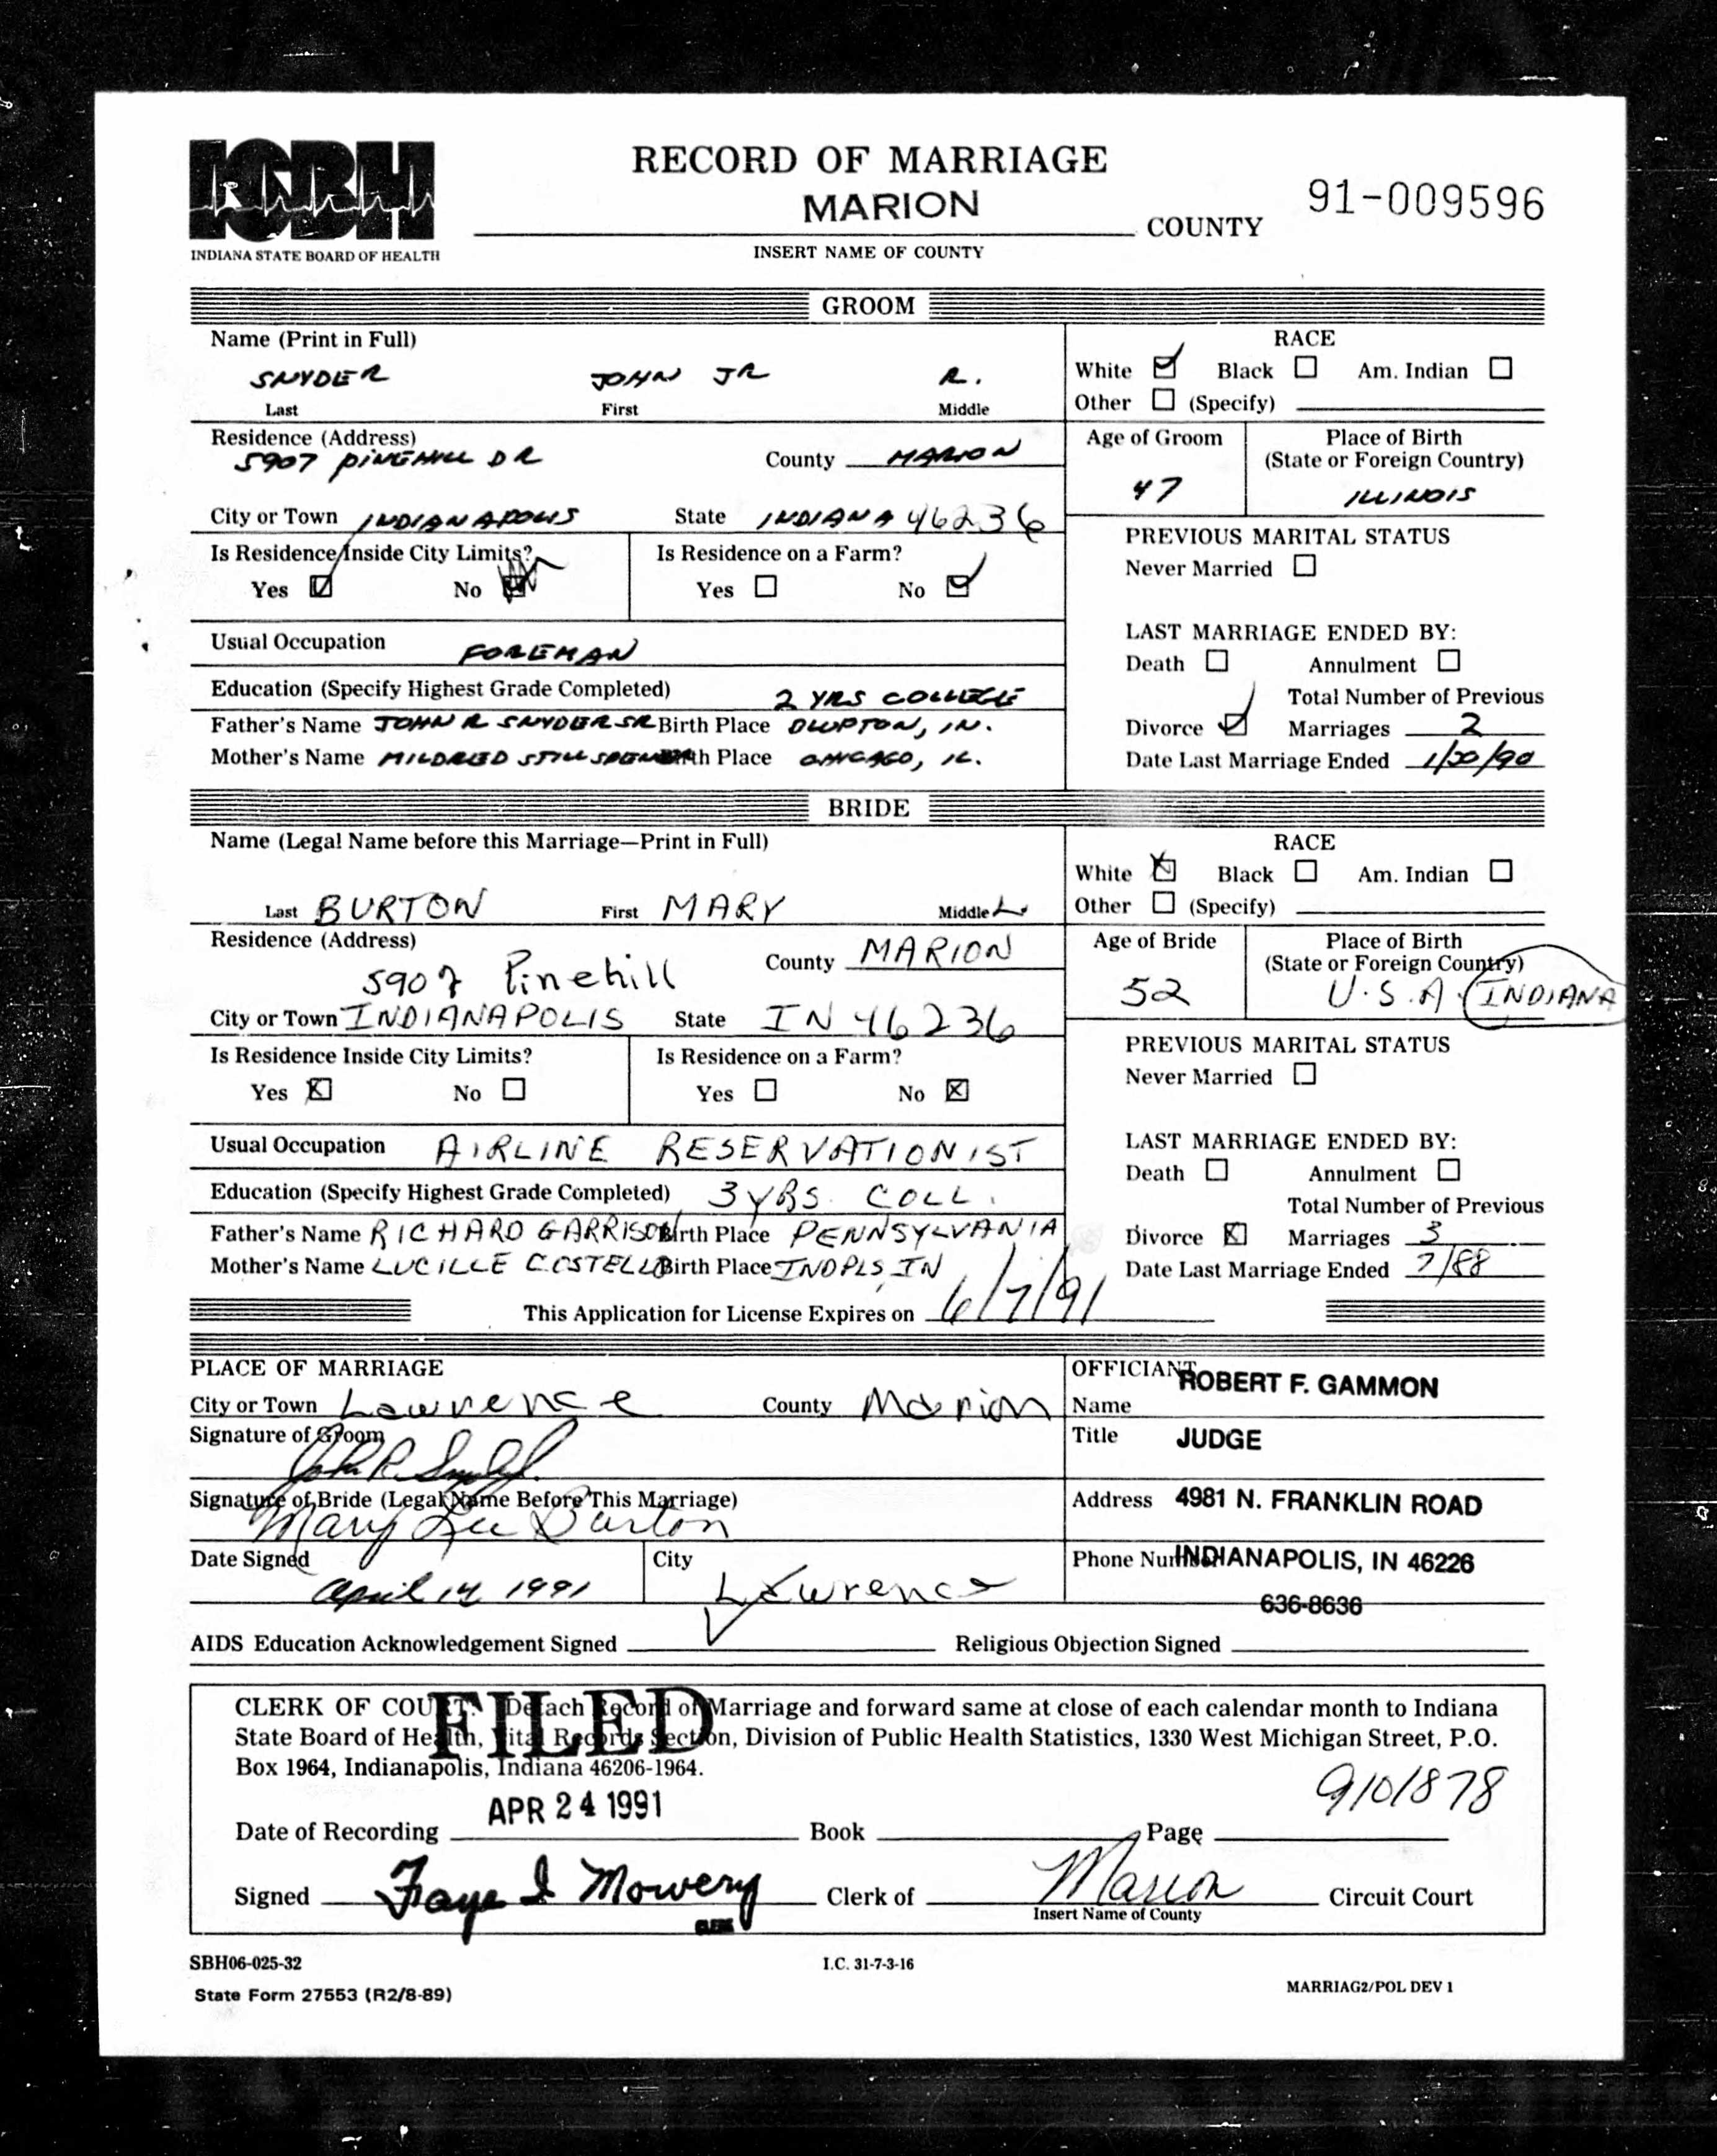 ISBH
RECORD OF MARRIAGE
MARION COUNTY 91-009596
INDIANA STATE BOARD OF HEALTH
INSERT NAME OF COUNTY
GROOM
Name (Print in Full)
SNYDER JOHN JR R.
Last First Middle
RACE
White ☑ Black ☐ Am. Indian ☐
Other ☐ (Specify)
Residence (Address)
5907 PINEHILL DR County MARION
City or Town INDIANAPOLIS State INDIANA 46236
Age of Groom
47
Place of Birth
(State or Foreign Country)
ILLINOIS
Is Residence Inside City Limits?
Yes ☑ No
Is Residence on a Farm?
Yes ☐ No ☑
PREVIOUS MARITAL STATUS
Never Married ☐
Usual Occupation FOREMAN
Education (Specify Highest Grade Completed) 2 YRS COLLEGE
Father's Name JOHN R SNYDER SR Birth Place IN.
Mother's Name MILDRED Birth Place CHICAGO, IL.
LAST MARRIAGE ENDED BY:
Death ☐ Annulment ☐
Total Number of Previous
Divorce ☑ Marriages 2
Date Last Marriage Ended 1/20/90
BRIDE
Name (Legal Name before this Marriage—Print in Full)
Last BURTON First MARY Middle L.
RACE
White ☒ Black ☐ Am. Indian ☐
Other ☐ (Specify)
Residence (Address)
5907 Pinehill County MARION
City or Town INDIANAPOLIS State IN 46236
Age of Bride
52
Place of Birth
(State or Foreign Country)
U.S.A. INDIANA
Is Residence Inside City Limits?
Yes ☒ No ☐
Is Residence on a Farm?
Yes ☐ No ☒
PREVIOUS MARITAL STATUS
Never Married ☐
Usual Occupation AIRLINE RESERVATIONIST
Education (Specify Highest Grade Completed) 3 YRS. COLL.
Father's Name RICHARD GARRISON Birth Place PENNSYLVANIA
Mother's Name LUCILLE COSTELLO Birth Place INDPLS, IN
LAST MARRIAGE ENDED BY:
Death ☐ Annulment ☐
Total Number of Previous
Divorce ☒ Marriages 3
Date Last Marriage Ended 7/88
This Application for License Expires on 6/7/91
PLACE OF MARRIAGE
City or Town Lawrence County Marion
Signature of Groom
John R. Snyder Jr.
Signature of Bride (Legal Name Before This Marriage)
Mary Lee Burton
Date Signed
April 14 1991
City
Lawrence
OFFICIANT
Name ROBERT F. GAMMON
Title JUDGE
Address 4981 N. FRANKLIN ROAD
Phone Number INDIANAPOLIS, IN 46226
636-8636
AIDS Education Acknowledgement Signed ✓ Religious Objection Signed
FILED
CLERK OF COURT: Detach Record of Marriage and forward same at close of each calendar month to Indiana
State Board of Health, Vital Records Section, Division of Public Health Statistics, 1330 West Michigan Street, P.O.
Box 1964, Indianapolis, Indiana 46206-1964.
9101878
Date of Recording APR 24 1991 Book Page
Signed Faye I Mowery Clerk of Marion Circuit Court
CLERK
Insert Name of County
SBH06-025-32 I.C. 31-7-3-16
State Form 27553 (R2/8-89) MARRIAG2/POL DEV 1